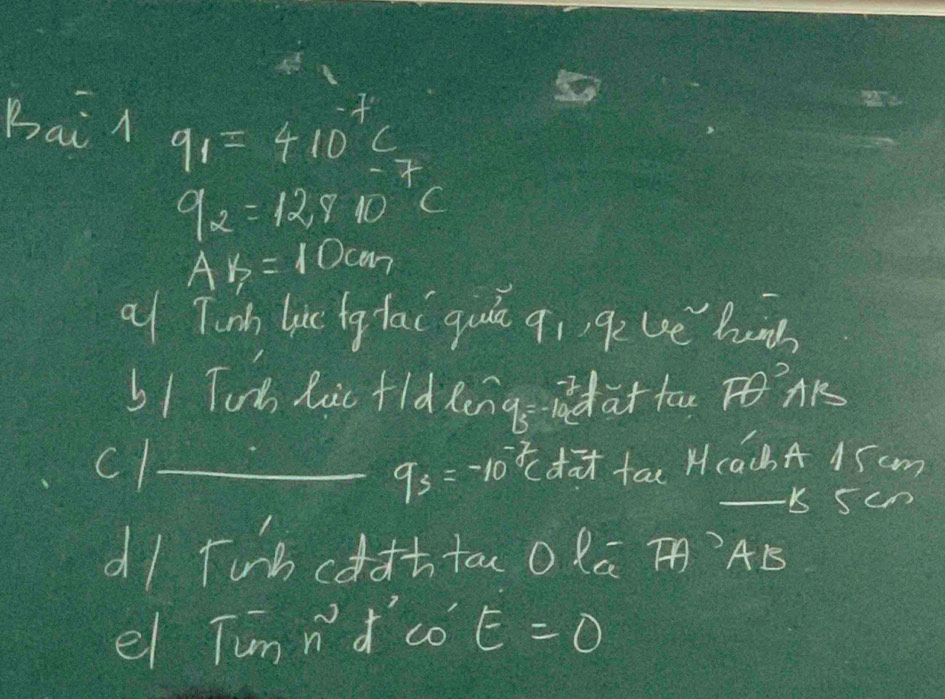 Bài 1 q₁ = 4 10⁻⁷ C
q₂ = 12,8 10⁻⁷ C
AB = 10cm
a/ Tính lực tg tác giữa q₁, q₂ vẽ hình
b/ Tính lực t/d lên q₃ = -10⁻⁷C đặt tại TĐ' AB
c/ ———— q₃ = -10⁻⁷C đặt tại H cách A 15 cm
—— B 5 cm
d/ Tính cđđth tại O là TĐ' AB
e/ Tìm n~ đ' có E = 0